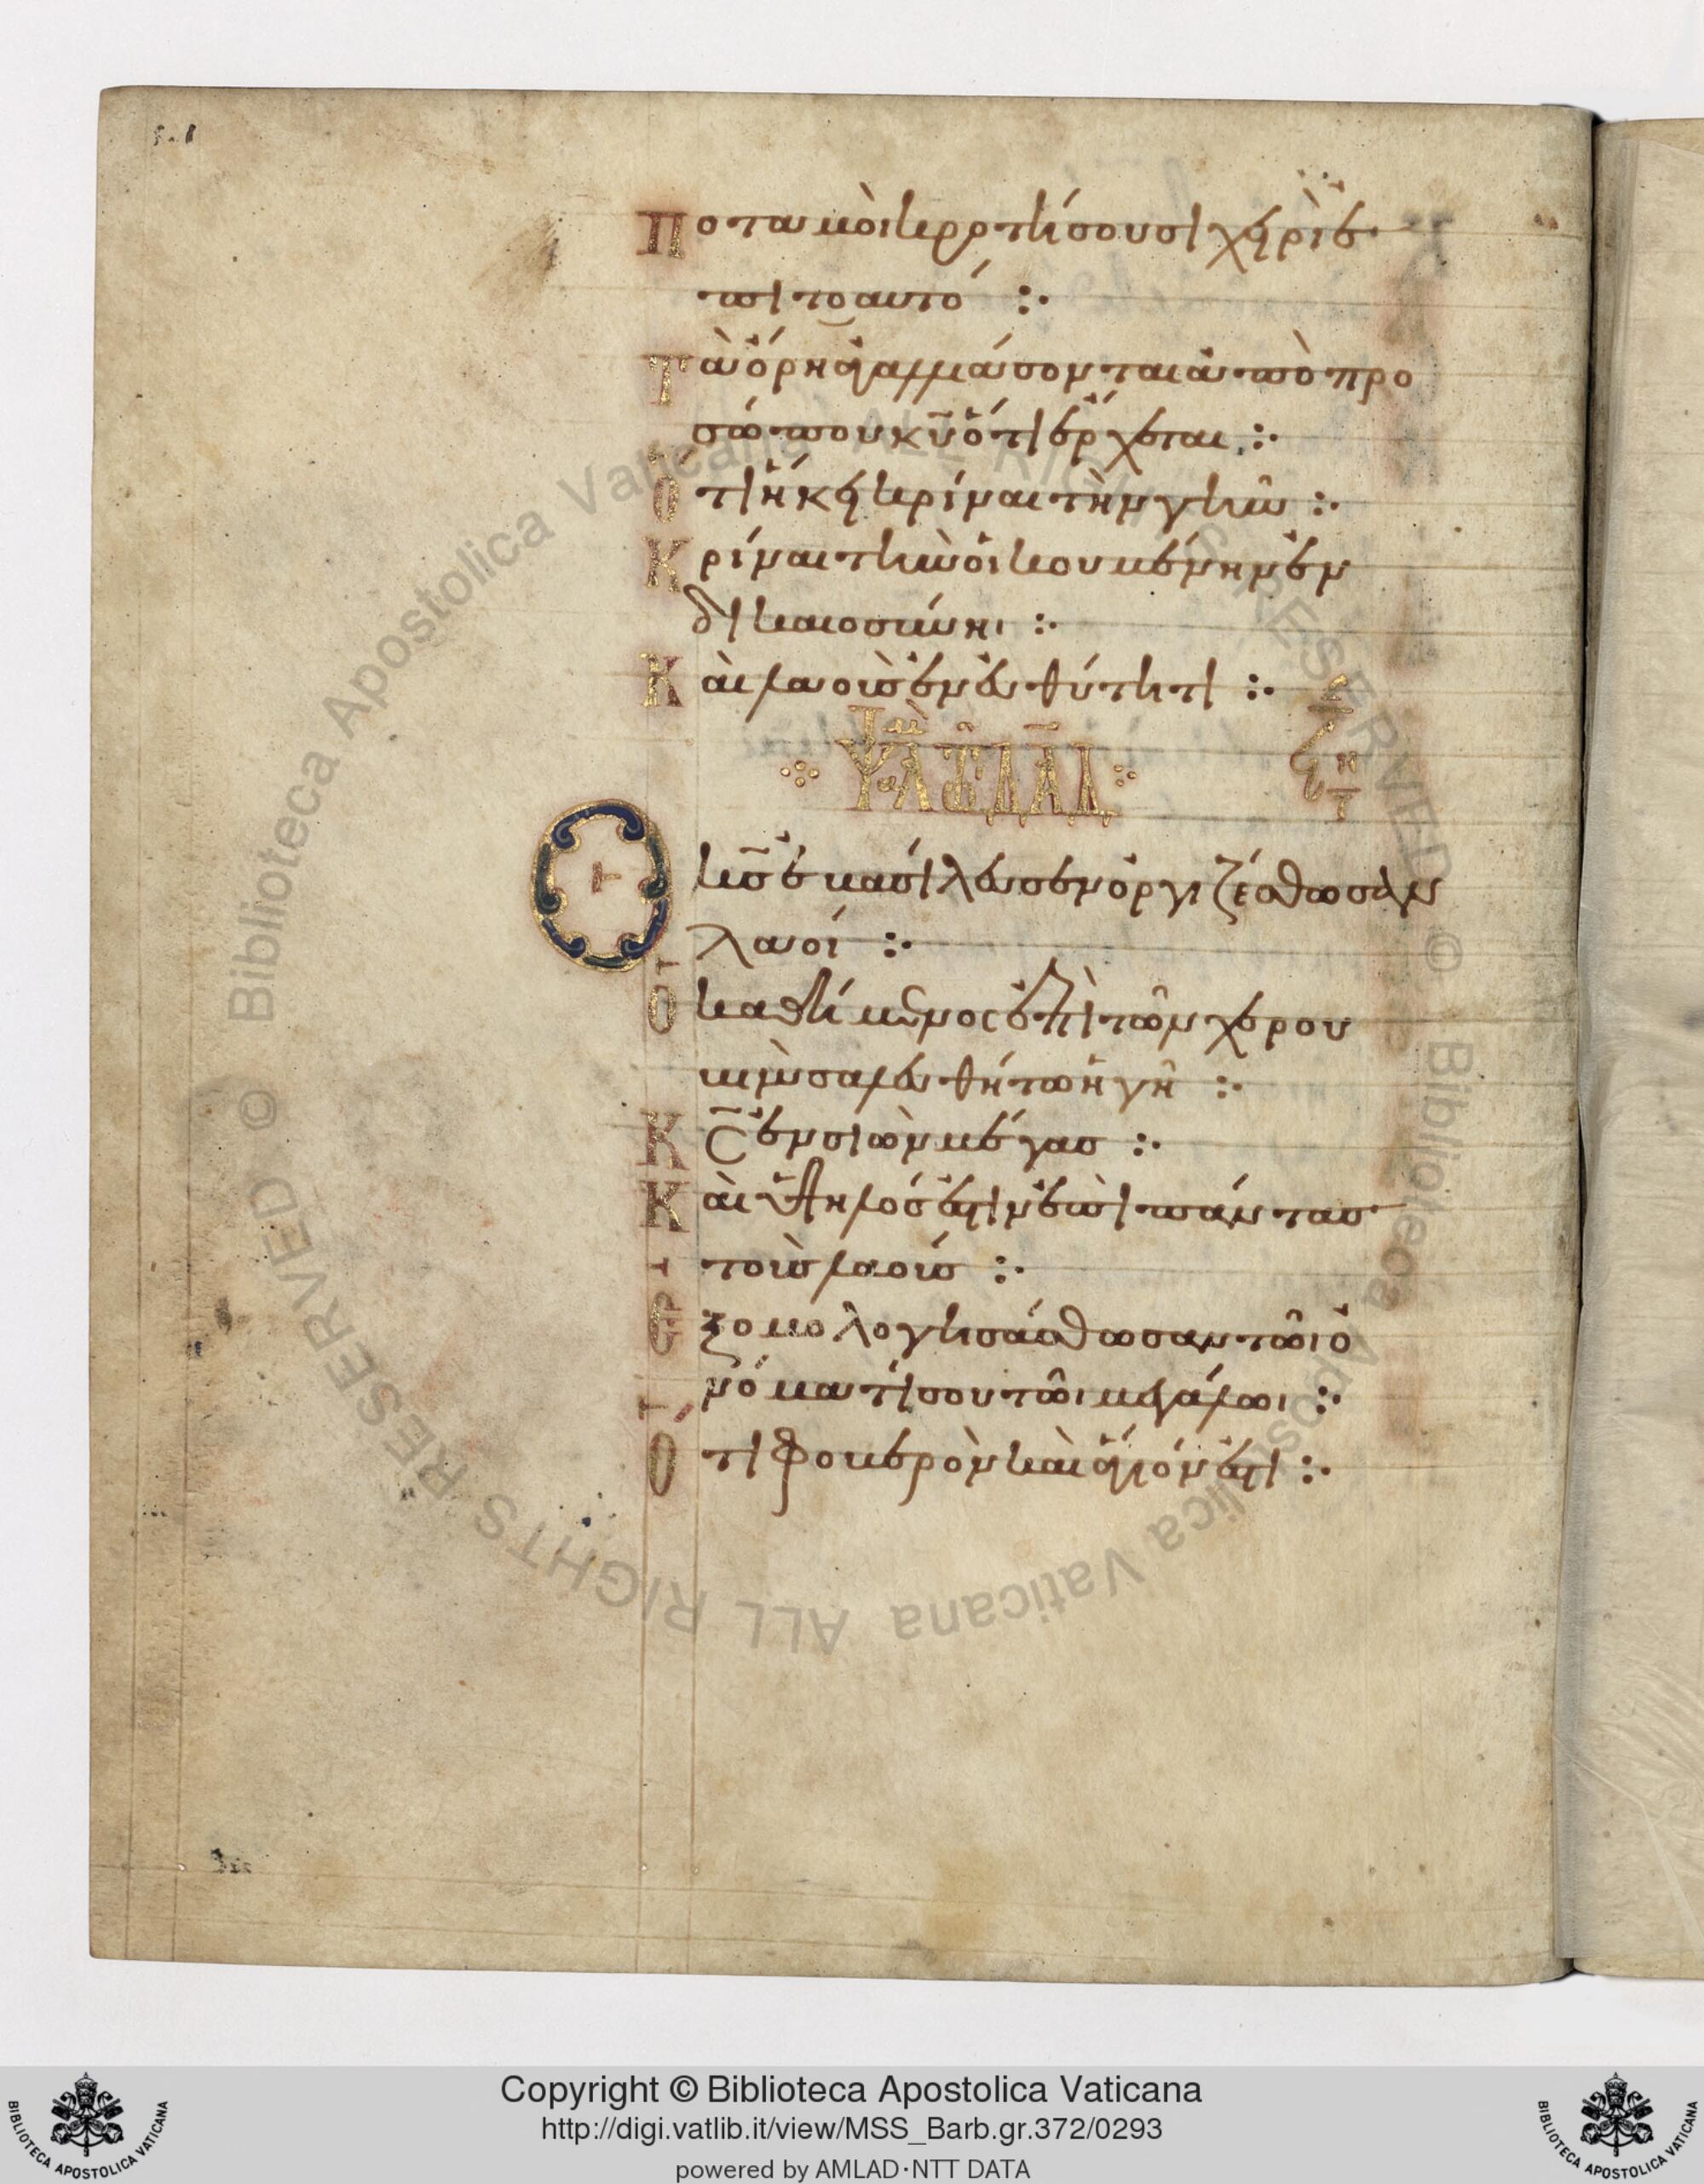 Ποταμοὶ κροτήσουσι χειρὶ ἐ
πιτοαυτό :·
Τὰ ὄρη ἀγαλλιάσονται ἀπὸ προ
σώπου κ̅υ̅ ὅτι ἔρχεται :·
Ὅτι ἥκει κρῖναι τὴν γῆν :·
Κρίναι τὴν οἰκουμένην ἐν
δικαιοσύνηι :·
Καὶ λαοὺς ἐν εὐθύτητι :·
Ὁ κ̅ς̅ ἐβασίλευσεν ὀργιζέσθωσαν
λαοί :·
Ὁ καθήμενος ἐπὶ τῶν χερου
βὶμ σαλευθήτω ἡ γῆ :·
Κ̅ς̅ ἐν σιὼν μέγας :·
Καὶ ὑψηλός ἐστιν ἐπὶ πάντας
τοὺς λαούς :·
Ἐξομολογησάσθωσαν τῶι ὀ
νόματί σου τῶι μεγάλωι :·
Ὅτι φοβερὸν καὶ ἅγιόν ἐστι :·
Copyright © Biblioteca Apostolica Vaticana
http://digi.vatlib.it/view/MSS_Barb.gr.372/0293
powered by AMLAD·NTT DATA
BIBLIOTECA APOSTOLICA VATICANA
BIBLIOTECA APOSTOLICA VATICANA
© Biblioteca Apostolica Vaticana ALL RIGHTS RESERVED
© Biblioteca Apostolica Vaticana ALL RIGHTS RESERVED